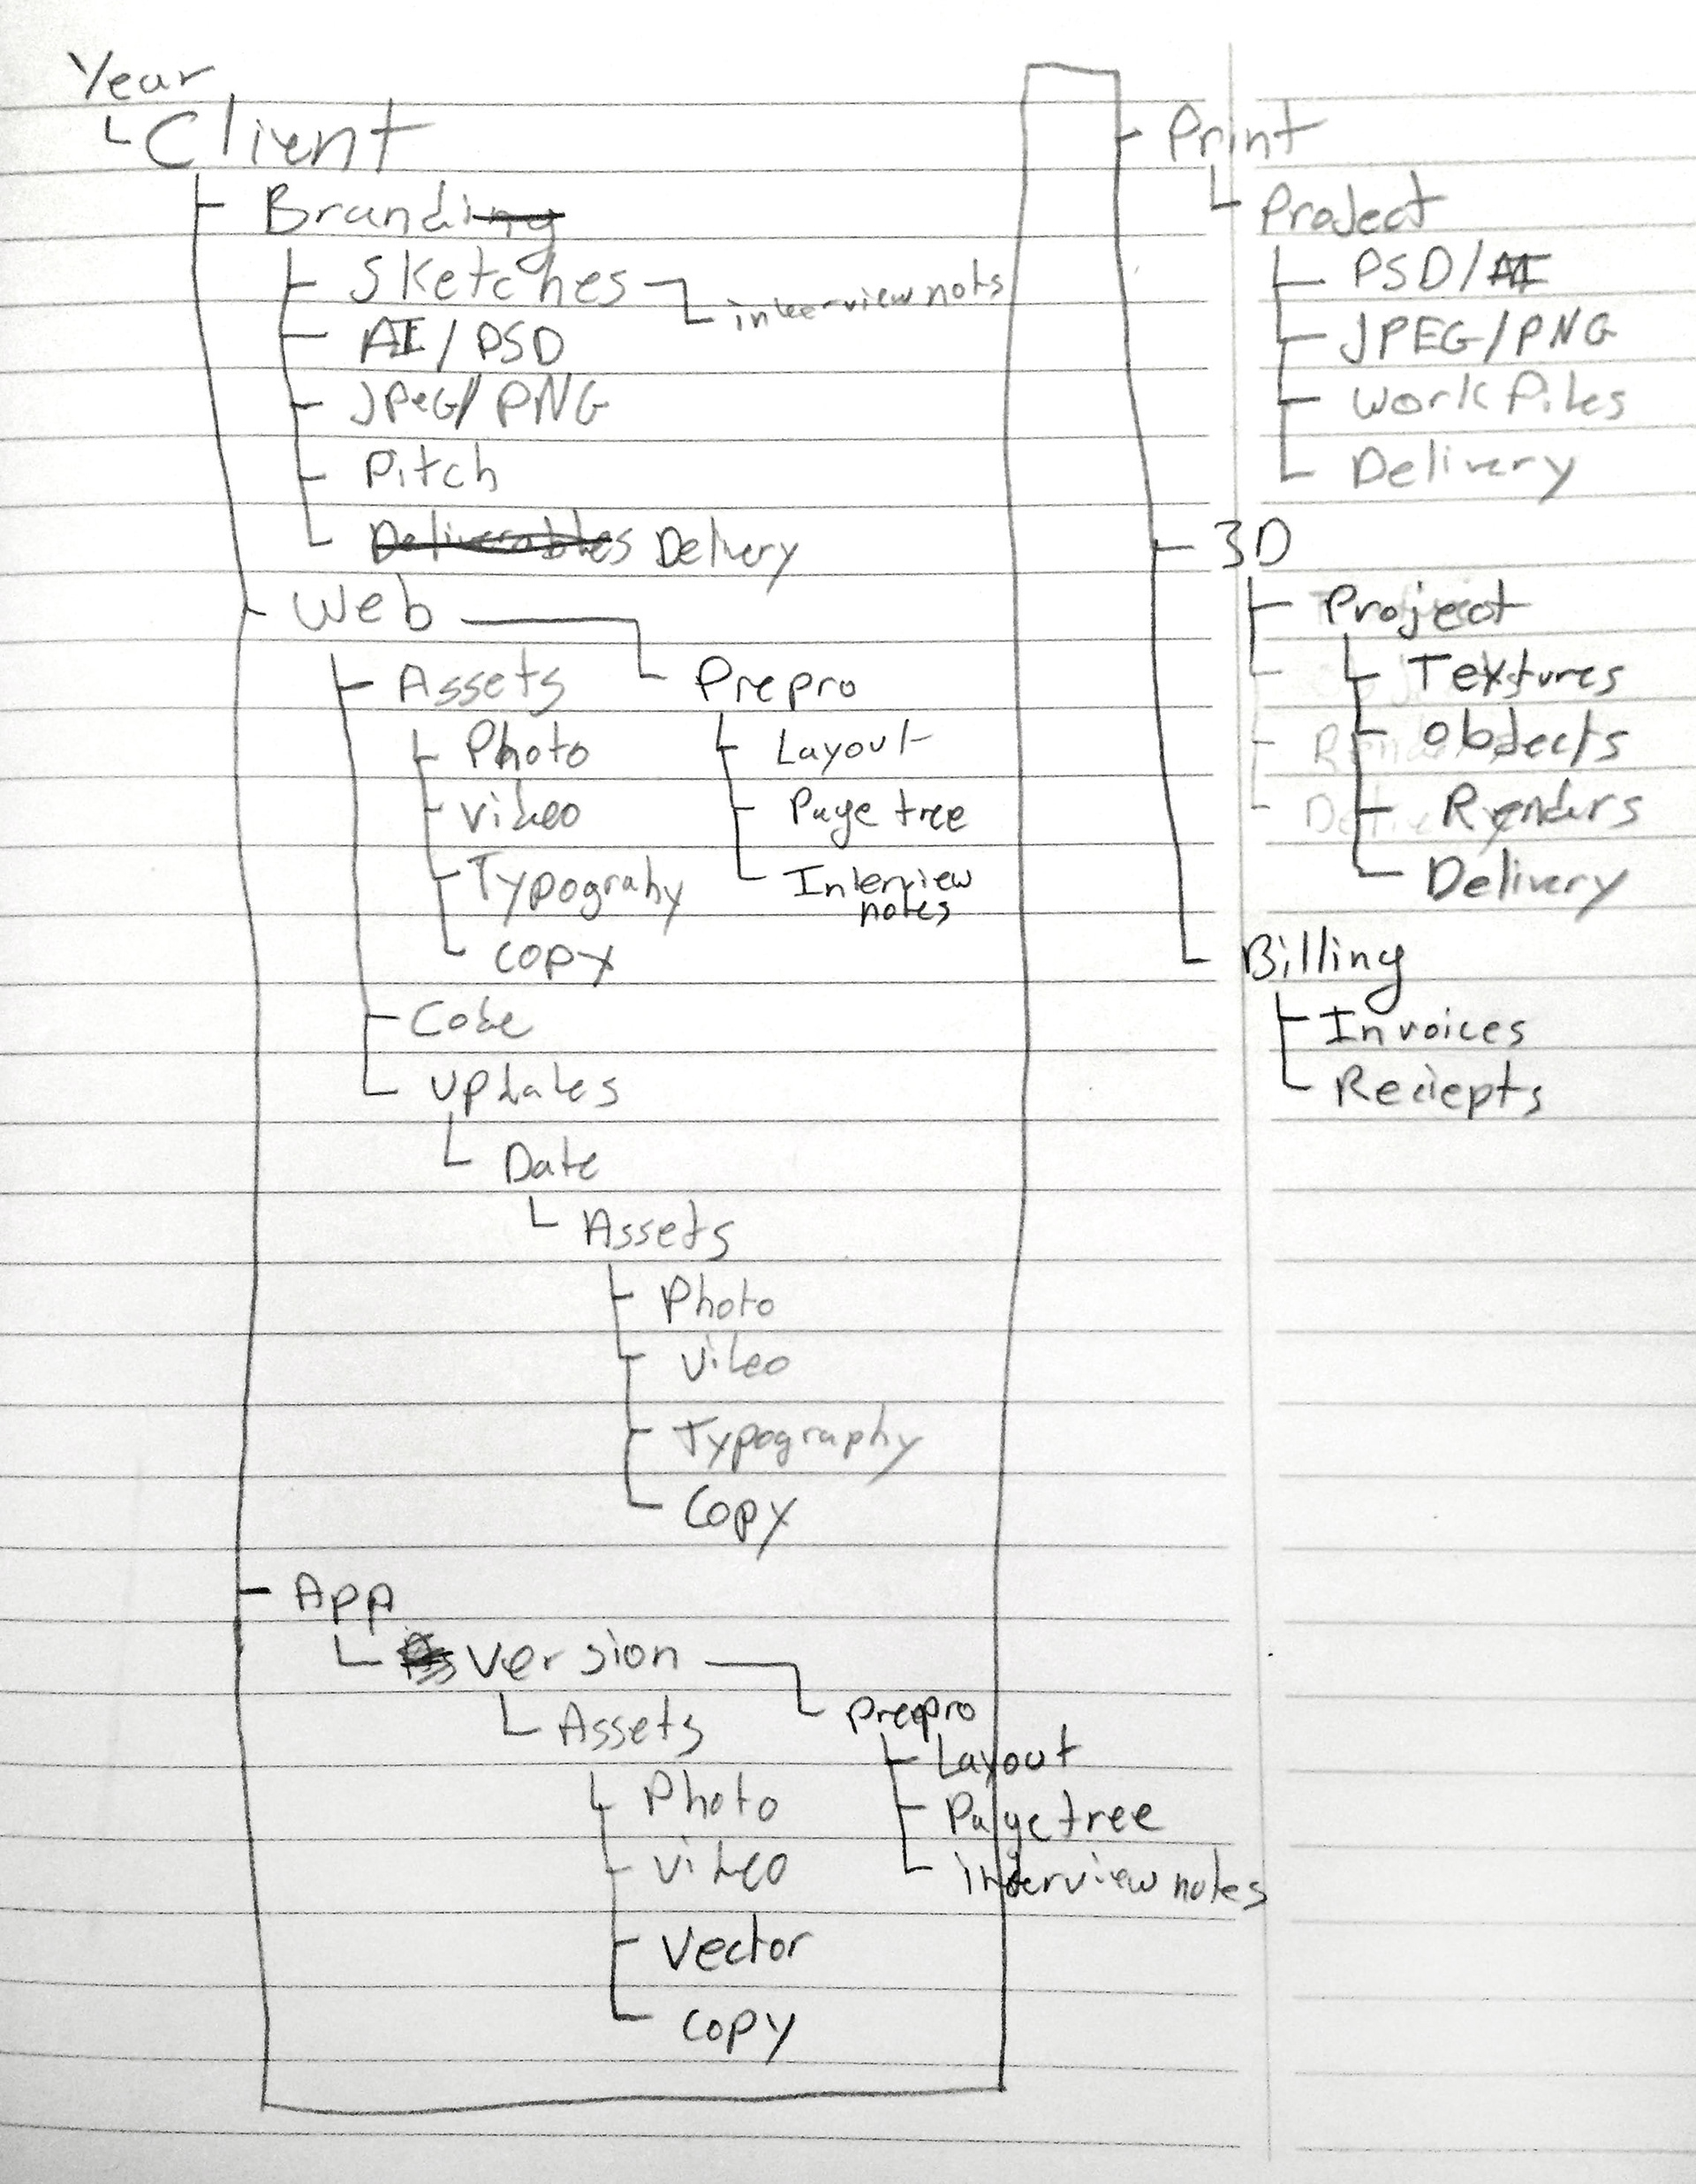 Year
Client
Branding
Sketches
interview nots
AI/PSD
JPeG/PNG
Pitch
Deliverables Delivery
Web
Prepro
Layout
Page tree
Interview
notes
Assets
Photo
Video
Typograhy
Copy
Code
Updates
Date
Assets
Photo
Video
Typography
Copy
App
Version
Prepro
Layout
Page tree
interview notes
Assets
Photo
Video
Vector
Copy
Print
Project
PSD/AI
JPEG/PNG
Work Files
Delivery
3D
Project
Textures
Objects
Renders
Delivery
Billing
Invoices
Reciepts